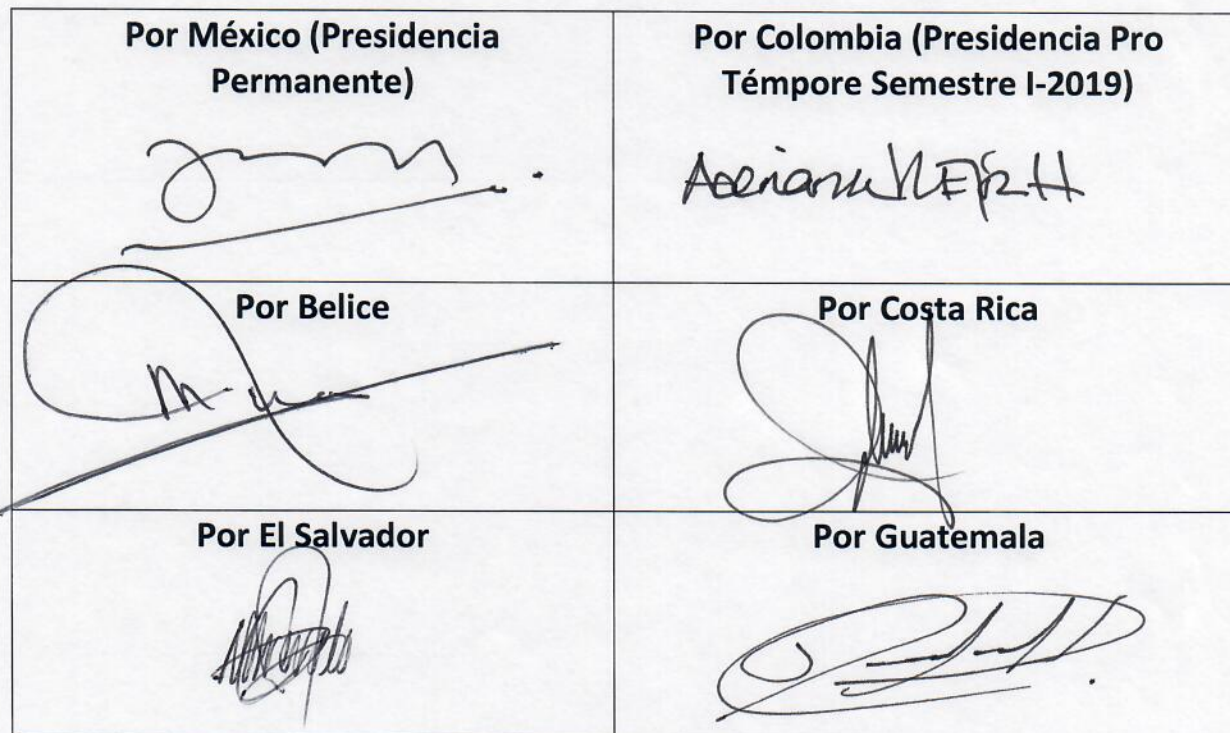 Por México (Presidencia
Permanente)
Por Colombia (Presidencia Pro
Témpore Semestre I-2019)
Por Belice
Por Costa Rica
Por El Salvador
Por Guatemala